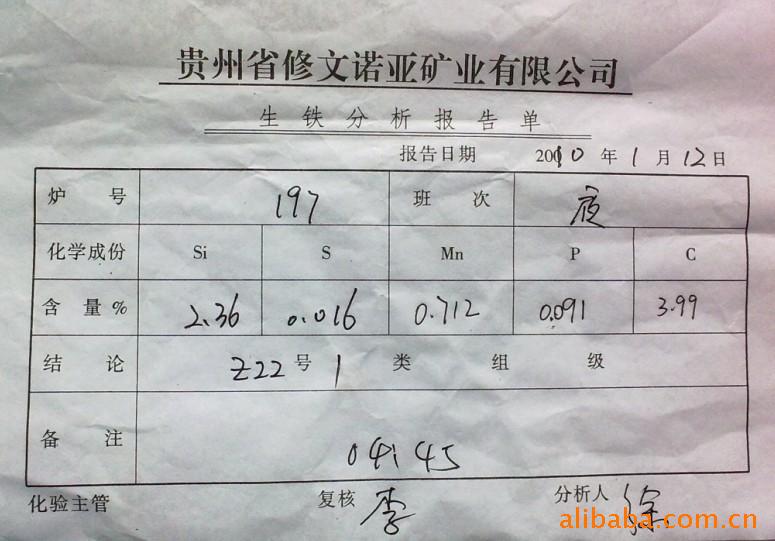 贵州省修文诺亚矿业有限公司
生铁分析报告单
报告日期 2010年1月12日
炉号 197 班次 夜
化学成份 Si S Mn P C
含量% 2.36 0.016 0.712 0.091 3.99
结论 Z22号 1 类 组 级
备注 04145
化验主管 复核 李 分析人 徐
alibaba.com.cn